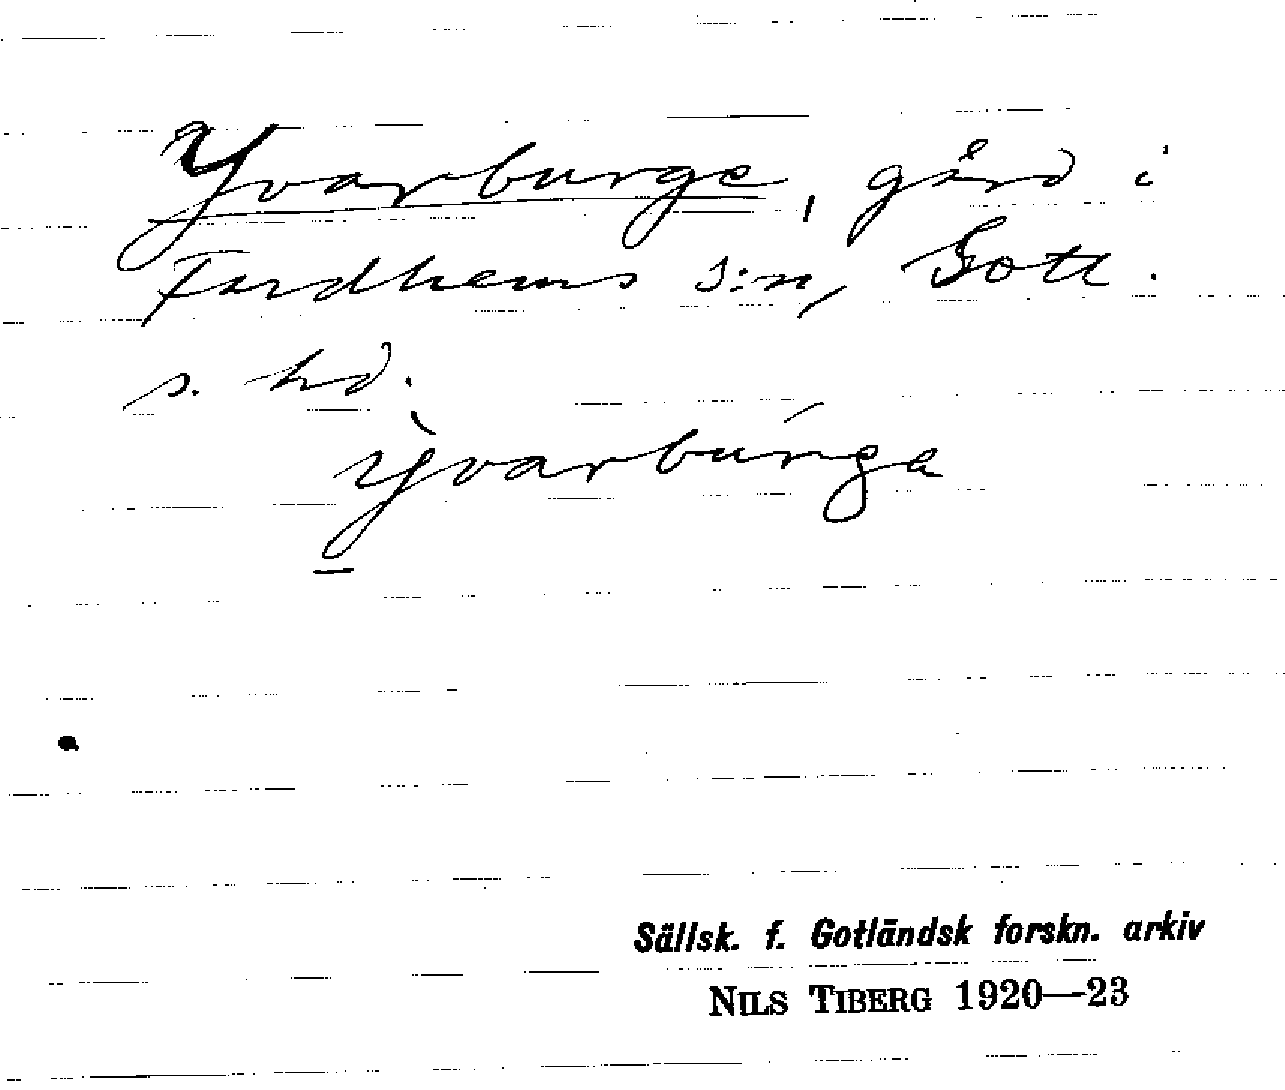 Yvarburge, gård i
Fardhems s:n, Gotl.
s. hd.
Ỳvarbúrga
Sällsk. f. Gotländsk forskn. arkiv
NILS TIBERG 1920—23